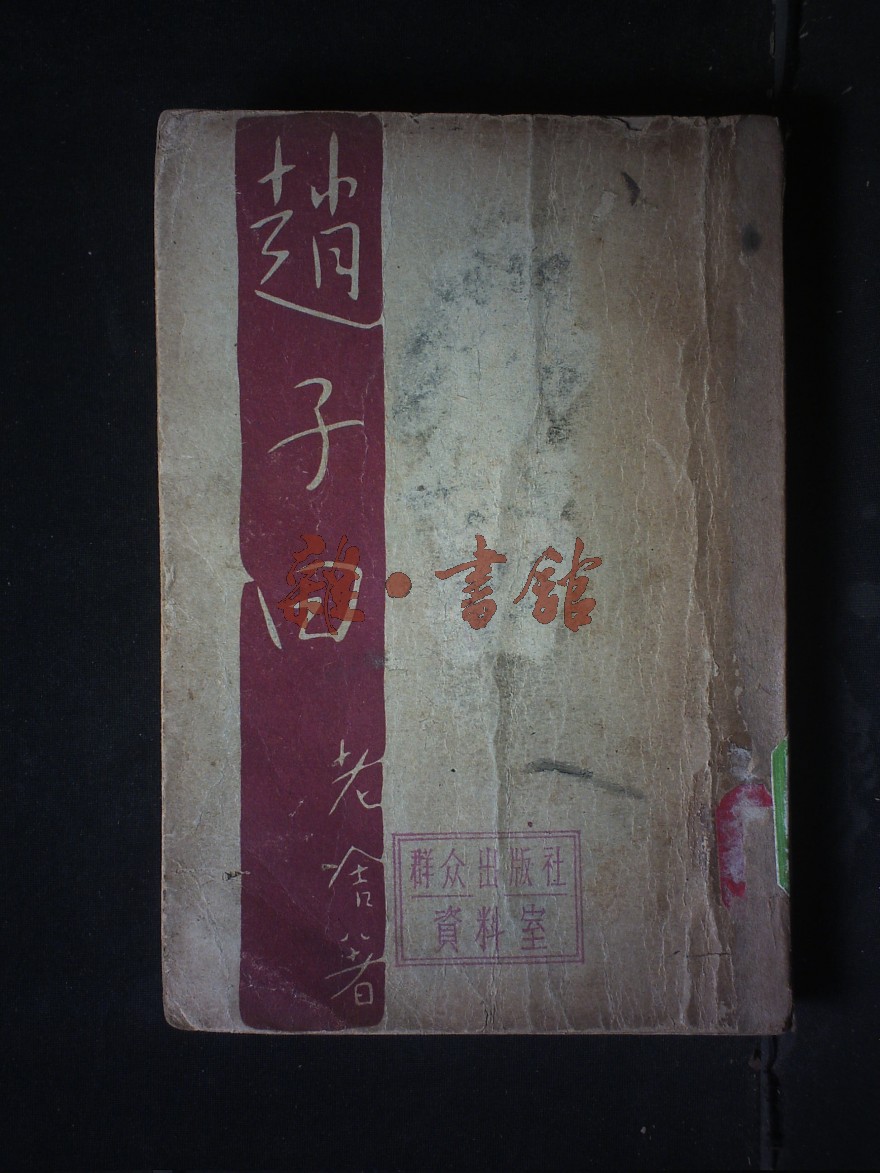 趙子曰
老舍著
雜·書館
群众出版社
資料室